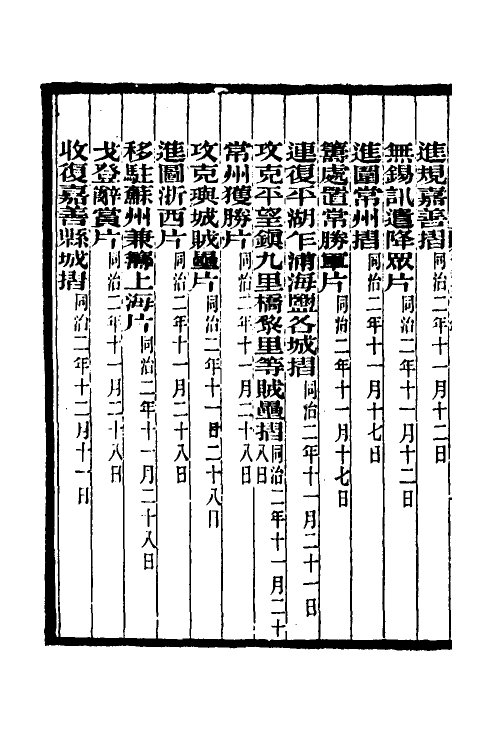 進規嘉善摺同治二年十一月十二日
無錫訊遣降眾片同治二年十一月十二日
進圍常州摺同治二年十一月十七日
籌處置常勝軍片同治二年十一月十七日
連復平湖乍浦海鹽各城摺同治二年十一月二十一日
攻克平望鎮九里橋黎里等賊壘摺同治二年十一月二十八日
常州獲勝片同治二年十一月二十八日
攻克興城賊壘片同治二年十一月二十八日
進圖浙西片同治二年十一月二十八日
移駐蘇州兼顧上海片同治二年十一月二十八日
戈登辭賞片同治二年十一月二十八日
收復嘉善縣城摺同治二年十二月十一日